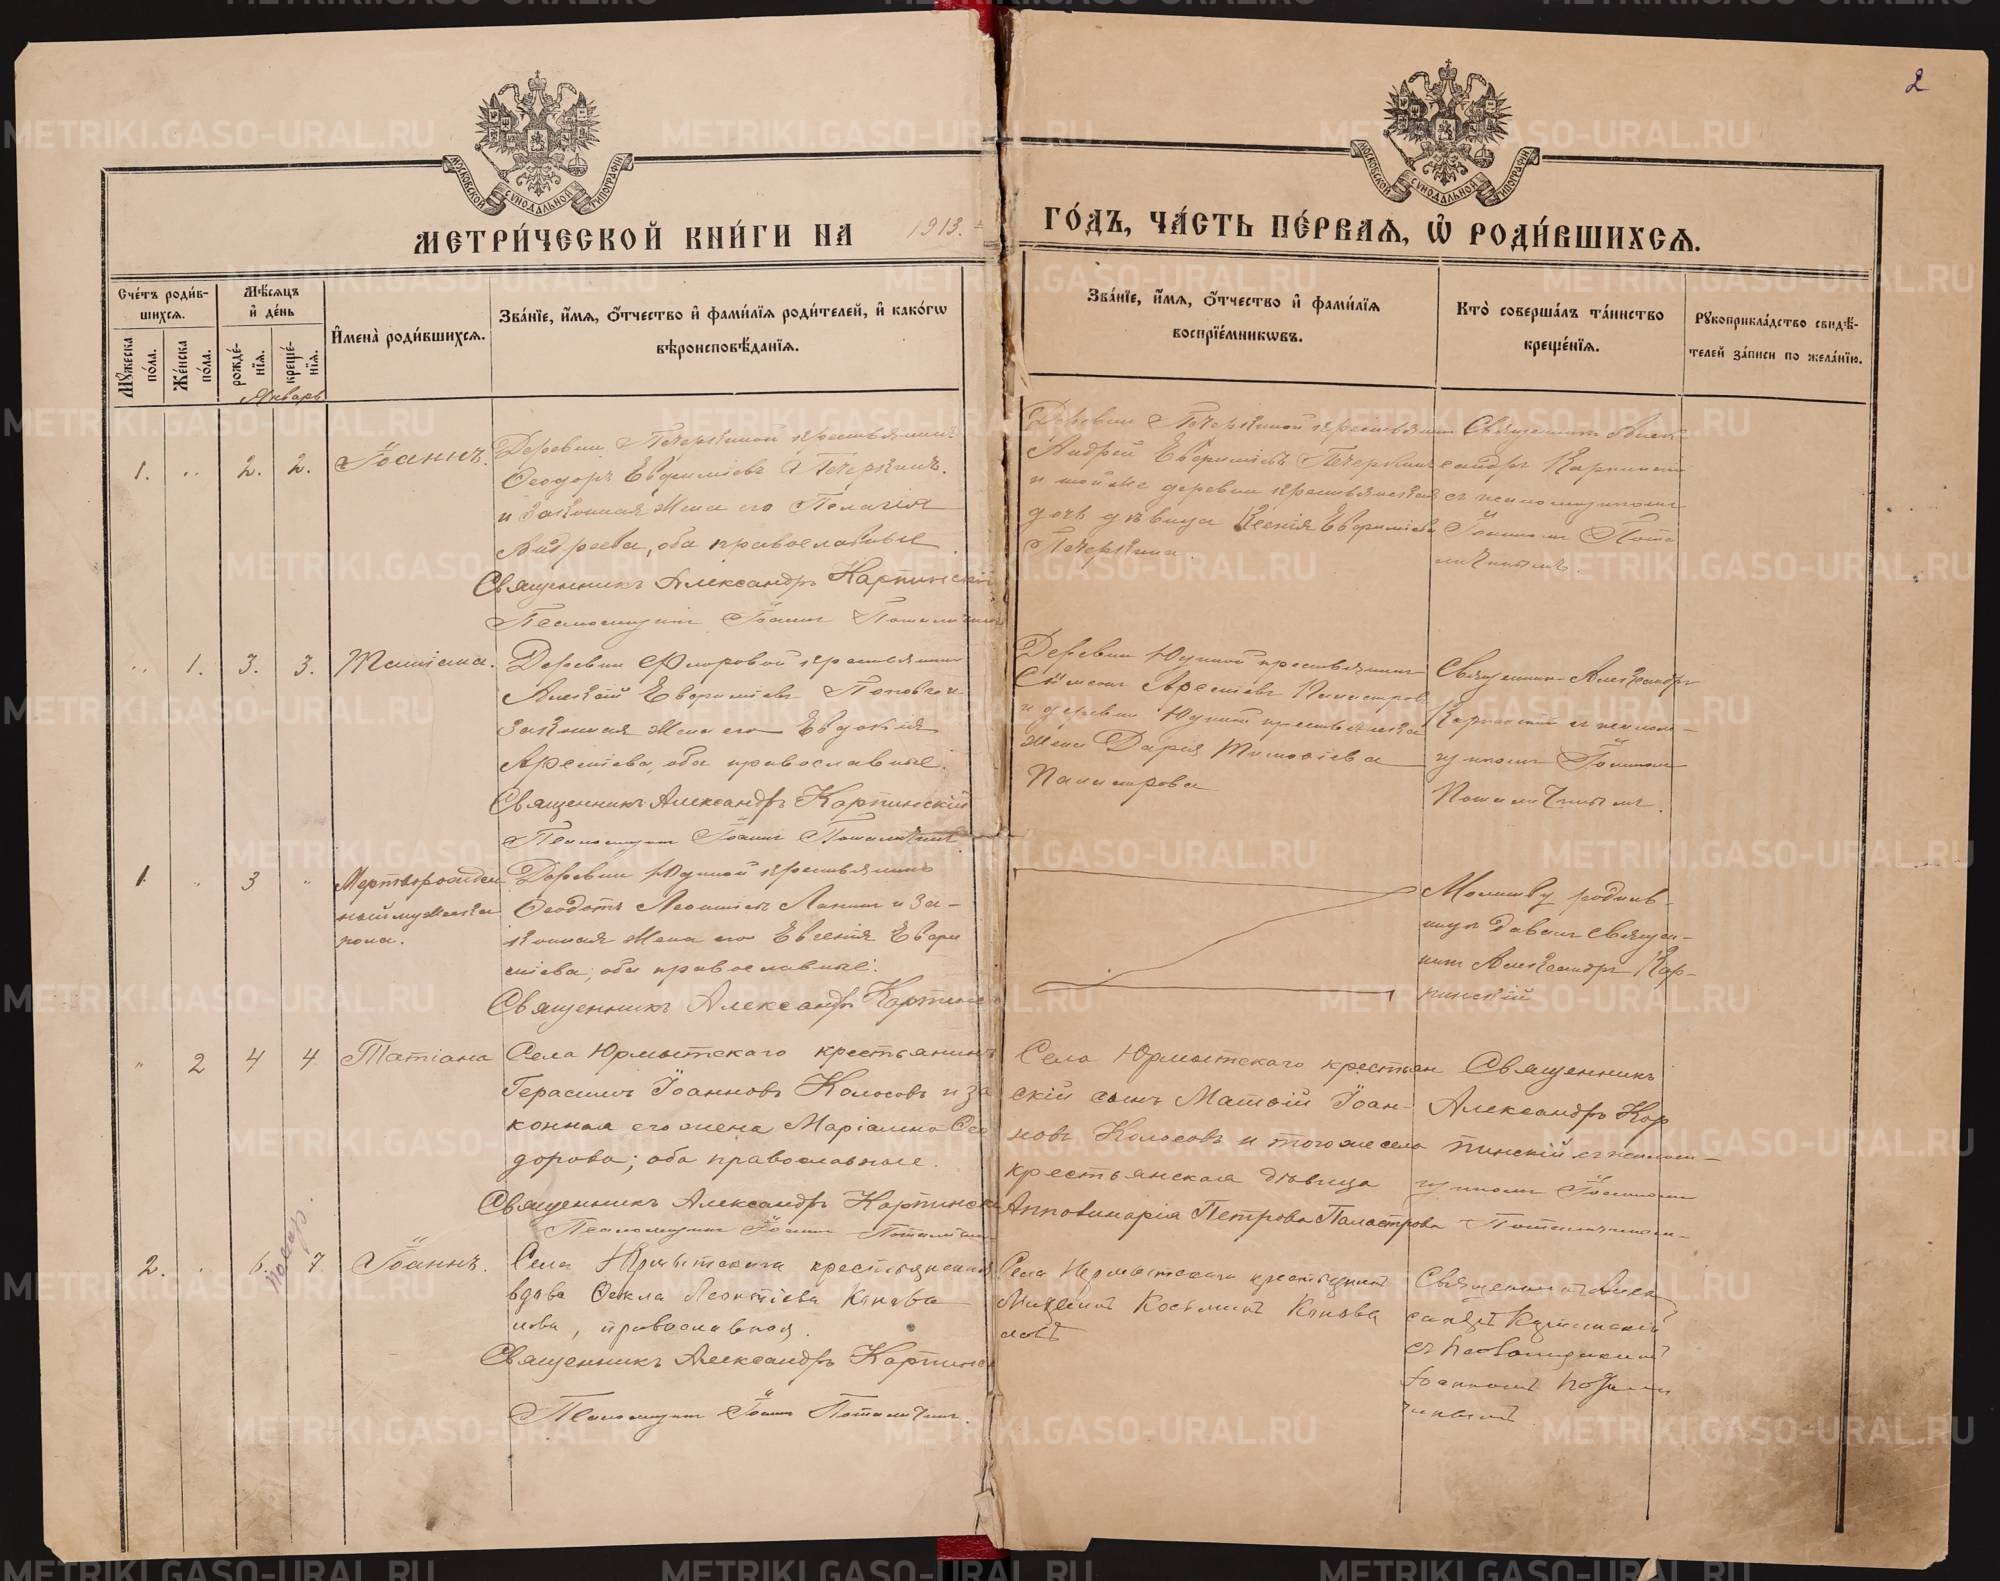 2
МОСКОВСКОЙ СѴНОДАЛЬНОЙ ТИПОГРАФІИ
МОСКОВСКОЙ СѴНОДАЛЬНОЙ ТИПОГРАФІИ
МЕТРИ́ЧЕСКОЙ КНИ́ГИ НА 1913. ГО́ДЪ, ЧА́СТЬ ПЕ́РВАѦ, Ѡ҆ РОДИ́ВШИХСѦ.
Сче́тъ роди́в-
шихсѧ.
Мѹ́жеска по́ла.
Же́нска по́ла.
Мѣ́сѧцъ и҆ де́нь
рожде́-
нїѧ.
креще́-
нїѧ.
И҆мена̀ роди́вшихсѧ.
Зва́нїе, и҆́мѧ, ѻ҆́тчество и҆ фами́лїѧ роди́телей, и҆ како́гѡ
вѣроисповѣ́данїѧ.
Зва́нїе, и҆́мѧ, ѻ҆́тчество и҆ фами́лїѧ
воспрїе́мникѡвъ.
Кто̀ соверша́лъ та́инство
креще́нїѧ.
Рѹкоприкла́дство свидѣ́-
телей за́писи по жела́нїю.
Январь
1. .. 2. 2. Іоаннъ.
Деревни Печеркиной крестьянинъ
Ѳеодоръ Евфиміевъ Печеркинъ.
и законная жена его Пелагія
Андреева, оба православные.
Священникъ Александръ Карпинскій
Псаломщикъ Іоаннъ
Деревни Печеркиной крестьянинъ
Андрей Евфиміевъ Печеркинъ
и той же деревни крестьянская
дочь дѣвица Ксенія Евфиміева
Печеркина.
Священникъ Алек-
сандръ Карпинскій
съ псаломщикомъ
Іоанномъ
.. 1. 3. 3. Татіана.
Деревни крестьянинъ
Алексій Евфиміевъ Поповъ и
законная жена его Евдокія
Арсеніева, оба православные.
Священникъ Александръ Карпинскій
Псаломщикъ Іоаннъ
Деревни Юдиной крестьянинъ
Сѵмеонъ Арсеніевъ
и деревни Юдиной крестьянская
жена Дарія Тимоѳіева
Священникъ Александръ
Карпинскій съ псалом-
щикомъ Іоанномъ
1. .. 3 ..
Мертворожден
ный мужеска
пола.
Деревни Юдиной крестьянинъ
Ѳеодотъ Леонтіевъ и за-
конная жена его Евгенія Евфи
міева, оба православные.
Священникъ Александръ Карпинс
Молитву родив-
шую давалъ Священ-
никъ Александръ Кар-
пинскій
.. 2 4 4 Татіана
Села Юрмытскаго крестьянинъ
Герасимъ Іоанновъ Колосовъ и за
конная его жена Маріамна Ѳео
дорова; оба православные.
Священникъ Александръ Карпинск
Псаломщикъ Іоаннъ
Села Юрмытскаго крестьян
скій сынъ Матѳій Іоан-
новъ Колосовъ и того же села
крестьянская дѣвица
Апполинарія Петрова Паластрова
Священникъ
Александръ Кар
пинскій съ псалом-
щикомъ Іоанномъ
2. . 6. 7 Іоаннъ.
Села Юрмытскаго крестьянская
вдова Ѳекла Леонтіева Конова
лова, православная.
Священникъ Александръ Карпинск
Псаломщикъ Іоаннъ
Села Юрмытскаго крестьянинъ
Михаилъ Косьминъ Конова
ловъ
Священникъ Алек
сандръ Карпинскій
съ псаломщикомъ
Іоанномъ
METRIKI.GASO-URAL.RU